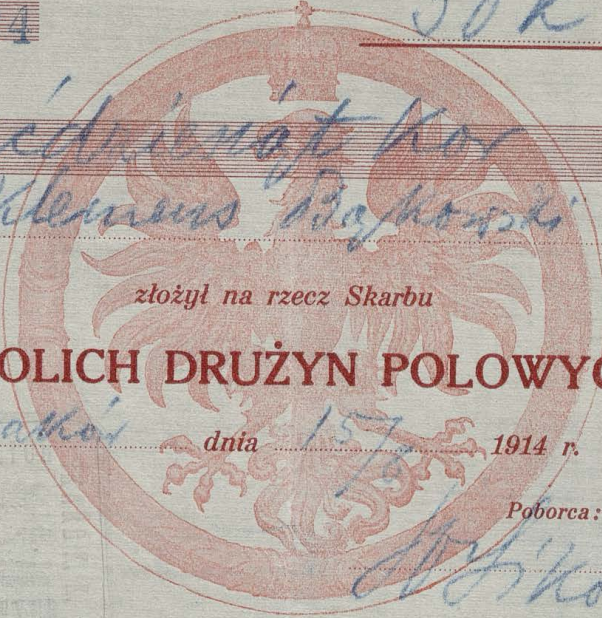 4 50 K
ćdziesiąt Kor
Klemens Bąkowski
złożył na rzecz Skarbu
OLICH DRUŻYN POLOWYC
aków dnia 15/8 1914 r.
Poborca: